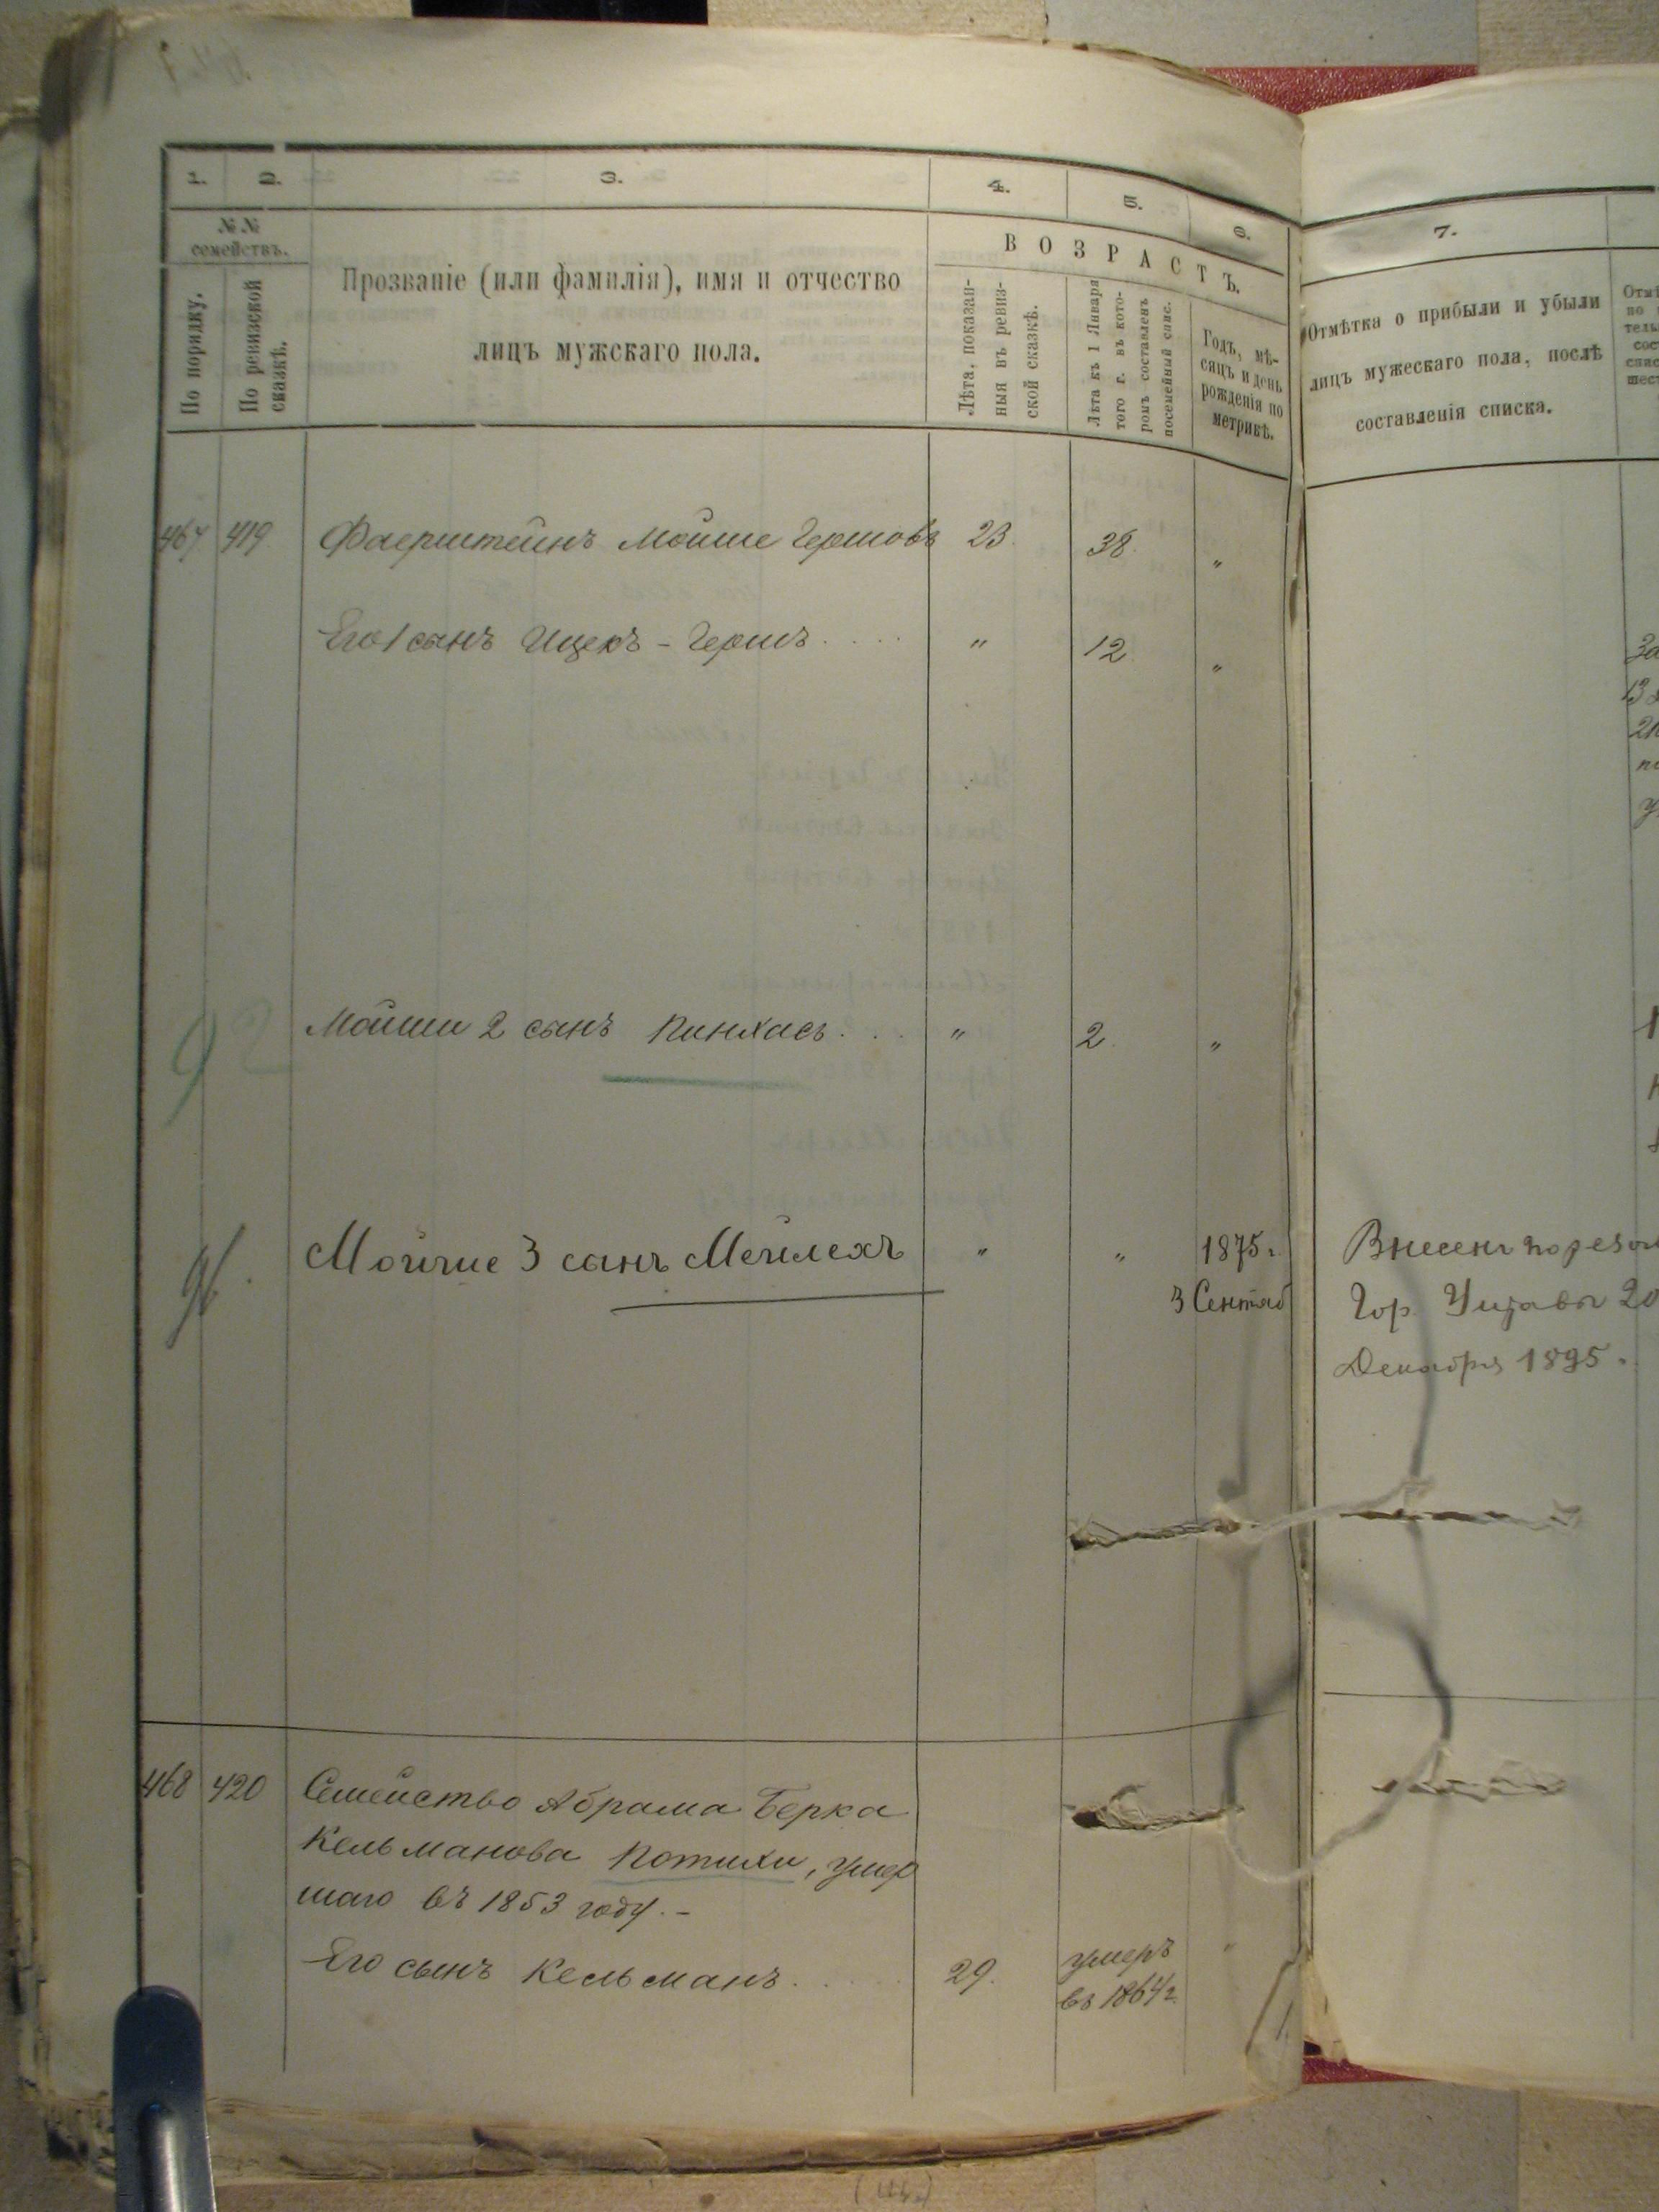 1. 2. 3. 4. 5. 6. 7.
№ № семействъ.
По порядку.
По ревизской сказкѣ.
Прозваніе (или фамилія), имя и отчество
лицъ мужскаго пола.
ВОЗРАСТЪ.
Лѣта, показан-
ныя въ ревиз-
ской сказкѣ.
Лѣта къ 1 Января
того г. въ кото-
ромъ составленъ
посемейный спис.
Годъ, мѣ-
сяцъ и день
рожденія по
метрикѣ.
Отмѣтка о прибыли и убыли
лицъ мужескаго пола, послѣ
составленія списка.
467 419 Фаерштейнъ Мойше Гершовъ 23. 38. „
Его 1 сынъ Ицекъ - Гершъ .... „ 12 „
92 Мойши 2 сынъ Пинхасъ ... „ 2. „
96. Мойше 3 сынъ Мейлехъ „ „ 1875 г.
3 Сентяб
Внесенъ
Гор. Управы 20
Декабря 1895.
468 420 Семейство Абрама Берка
Кельманова Потихи, умер
шаго въ 1853 году. -
Его сынъ Кельманъ ..... 29. умеръ „
въ 1864 г.